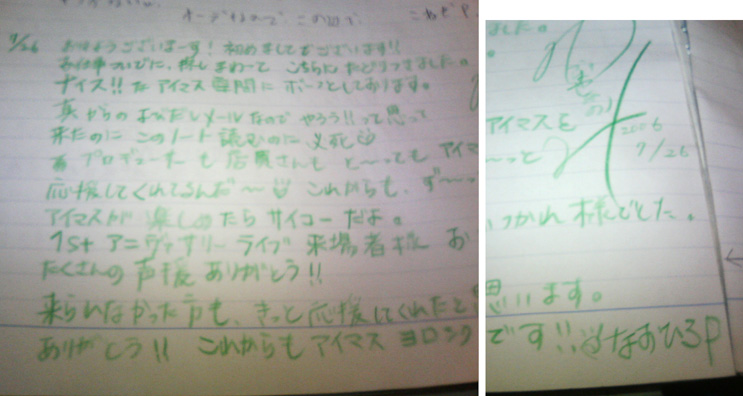 オーデションで この辺で
これぞP
7/26 おはようございまーす！初めましてでございます!!
お仕事ついでに、探しまわって こちらに たどりつきました。
ナイス!! なアイマス 空間に ボーっとしております。
真からのよびだしメールなので やろう!!って思って
来たのに このノート読むのに 必死
プロデューサーも店員さんも と〜っても アイマ
応援してくれてるんだ〜 これからも、ず〜っ
アイマスが 楽しめたら サイコーだよ。
1st アニヴァサリー ライブ 来場者様 お
たくさんの 声援 ありがとう!!
来られなかった方も、きっと応援してくれたと
ありがとう!! これからもアイマス ヨロシク
ました。
アイマスを
〜っと
2006
7/26
つかれ様でした。
思います。
です!! なおひろP